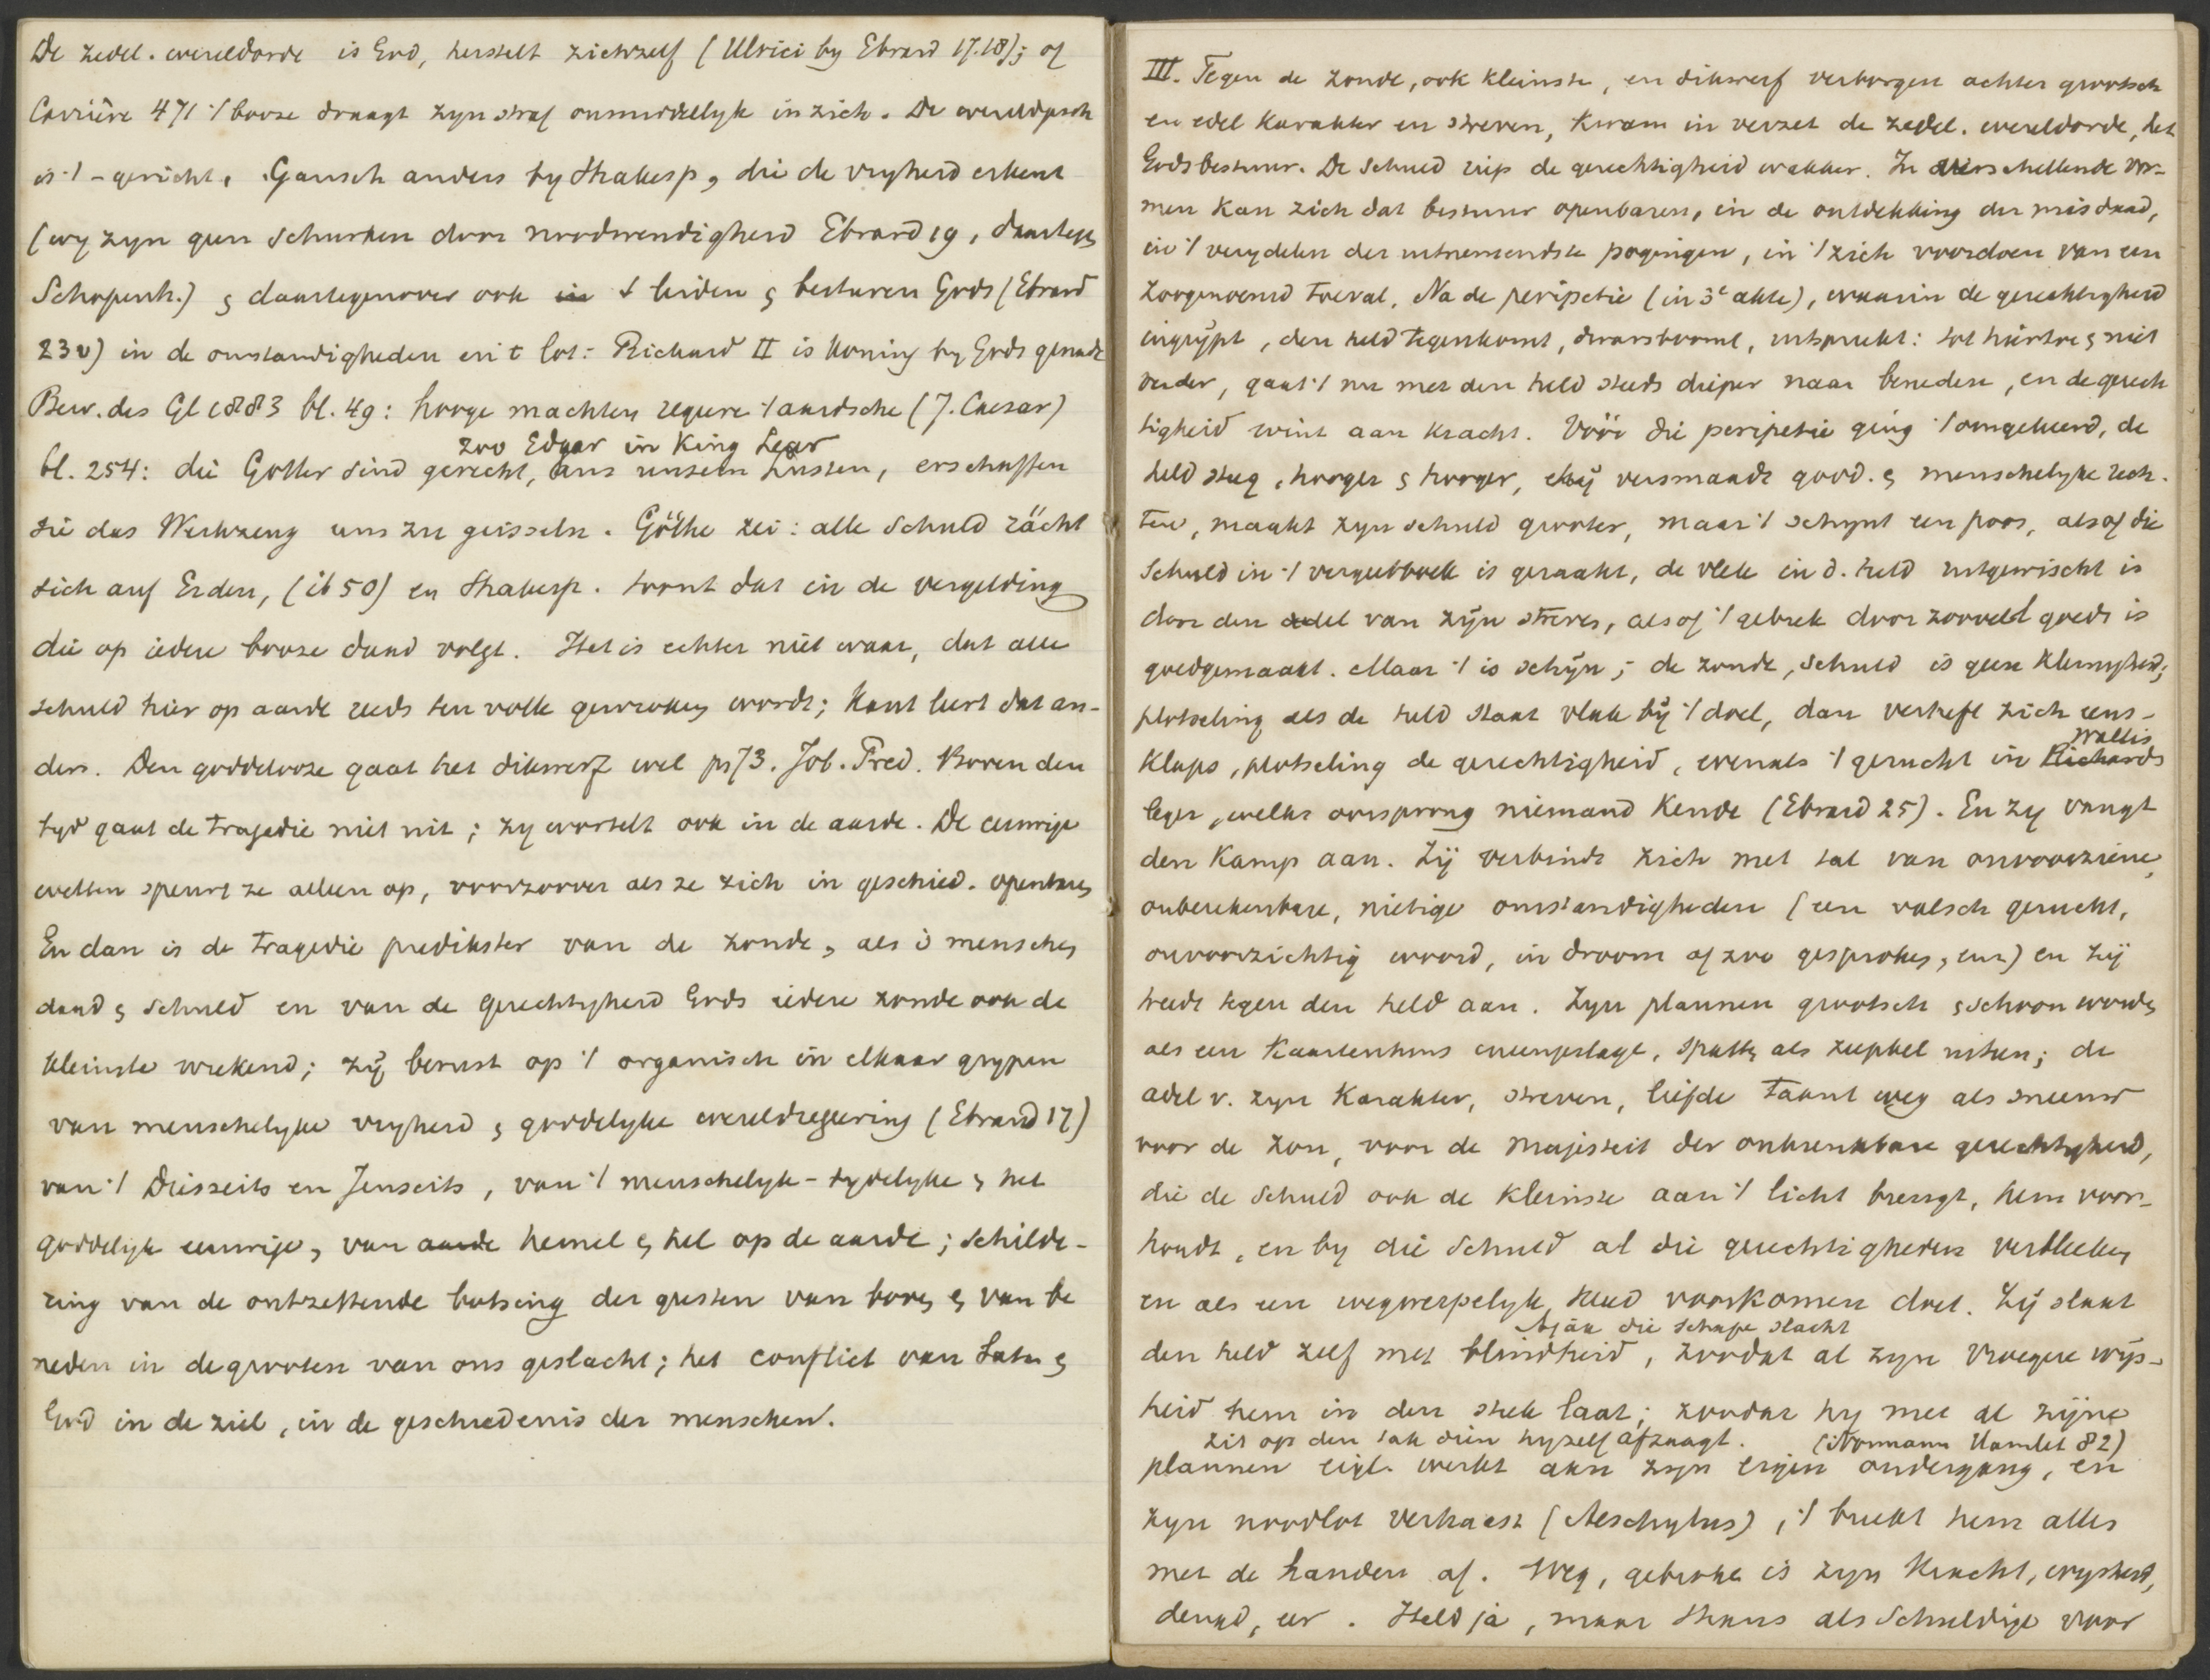 De zedel. wereldorde is God, herstelt zichzelf (Ulrici by Ebrard 17.18); of
Carrière 471 't booze draagt zyn straf onmiddelyk in zich. De wereldgesch
is 't - gericht. Gansch anders by Shakesp, die de vryheid erkent
(wy zyn geen schurken door noodwendigheid Ebrard 19, daartegen
Schopenh.) & daartegenover ook in 't leiden & besturen Gods (Ebrard
23v) in de omstandigheden en 't lot: Richard II is koning by Gods genade
Bew. des Gl 1883 bl. 49: hooge machten regeren 't aardsche (J. Caesar)
zoo Edgar in King Lear
bl. 254: die Götter sind gerecht, aus unsern Lüsten, erschaffen
sie das Werkzeug uns zu geisseln. Göthe zei: alle Schuld rächt
sich auf Erden, (ib 50) en Shakesp. toont dat in de vergelding
die op iedere booze daad volgt. Het is echter niet waar, dat alle
schuld hier op aarde reeds ten volle gewroken wordt; Kant leert dat an-
ders. Den goddelooze gaat het dikwerf wel ps 73. Job. Pred. Boven den
tyd gaat de tragedie niet uit; zy wortelt ook in de aarde. De eeuwige
wetten speurt ze alleen op, voorzoover als ze zich in geschied. openbaren
En dan is de tragedie predikster van de zonde, als 's menschen
daad & schuld en van de gerechtigheid Gods iedere zonde ook de
kleinste wrekend; zij berust op 't organisch in elkaar grypen
van menschelyke vryheid & goddelyke wereldregeering (Ebrard 17)
van 't Diesseits en Jenseits, van 't menschelyk-tydelyke & het
goddelyk eeuwige, van aarde hemel & hel op de aarde; schilde-
ring van de ontzettende botsing der geesten van boven & van be
neden in de grooten van ons geslacht; het conflict van Satan &
God in de ziel, in de geschiedenis der menschen.
III. Tegen de zonde, ook kleinste, en dikwerf verborgen achter grootsch
en edel karakter en streven, kwam in verzet de zedel. wereldorde, het
Godsbestuur. De schuld riep de gerechtigheid wakker. In verschillende vor-
men kan zich dat bestuur openbaren, in de ontdekking der misdaad,
in 't verydelen der uitnemendste pogingen, in 't zich voordoen van een
zoogenoemd toeval. Na de peripetie (in 3e akte), waarin de gerechtigheid
ingrijpt, den held tegenkomt, dwarsboomt, uitspreekt: tot hiertoe & niet
verder, gaat 't nu met den held steeds dieper naar beneden, en de gerech
tigheid wint aan kracht. Vóór die peripetie ging 't omgekeerd, de
held steeg, hooger & hooger, hij versmaadt godd. & menschelyke rech-
ten, maakt zyn schuld grooter, maar 't schynt een poos, alsof die
schuld in 't vergeetboek is geraakt, de vlek in d. held uitgewischt is
door den adel van zijn streven, alsof 't gebrek door zooveel goeds is
goedgemaakt. Maar 't is schijn; de zonde, schuld is geen kleinigheid;
plotseling als de held staat vlak bij 't doel, dan verheft zich eens-
Wallis
klaps, plotseling de gerechtigheid, evenals 't gerucht in Richards
leger, welks oorsprong niemand kende (Ebrard 25). En zy vangt
den kamp aan. Zij verbindt zich met tal van onvoorziene,
onberekenbare, nietige omstandigheden (een valsch gerucht,
onvoorzichtig woord, in droom of zoo gesproken, enz) en zij
treedt tegen den held aan. Zyn plannen grootsch & schoon worden
als een kaartenhuis ineengeslagt, spatten als zeepbel uiteen; de
adel v. zyn karakter, streven, liefde taant weg als sneeuw
voor de zon, voor de majesteit der onkrenkbare gerechtigheid,
die de schuld ook de kleinste aan 't licht brengt, hem voor-
houdt, en by die schuld al die gerechtigheden verbleeken
en als een wegwerpelyk kleed voorkomen doet. Zij slaat
Ajax die schape slacht
den held zelf met blindheid, zoodat al zyn vroegere wijs-
heid hem in den steek laat; zoodat hy met al zijne
zit op den tak dien hyzelf afzaagt. (Normann Hamlet 82)
plannen eigl. werkt aan zyn eigen ondergang, en
zyn noodlot verhaast (Aeschylus), 't breekt hem alles
met de handen af. Weg, gebroken is zyn kracht, wysheid,
deugd, eer. Held ja, maar thans als schuldige voor